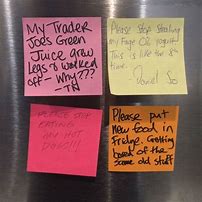 My Trader
Joes Green
Juice grew
legs & walked
off - Why???
- TN
Please Stop Stealing
my Fage 0% Yogurt
This is like the 8th
time
PLEASE STOP
EATING
MY HOT
DOGS!!!
Please put
new food in
fridge. Getting
bored of the
same old stuff